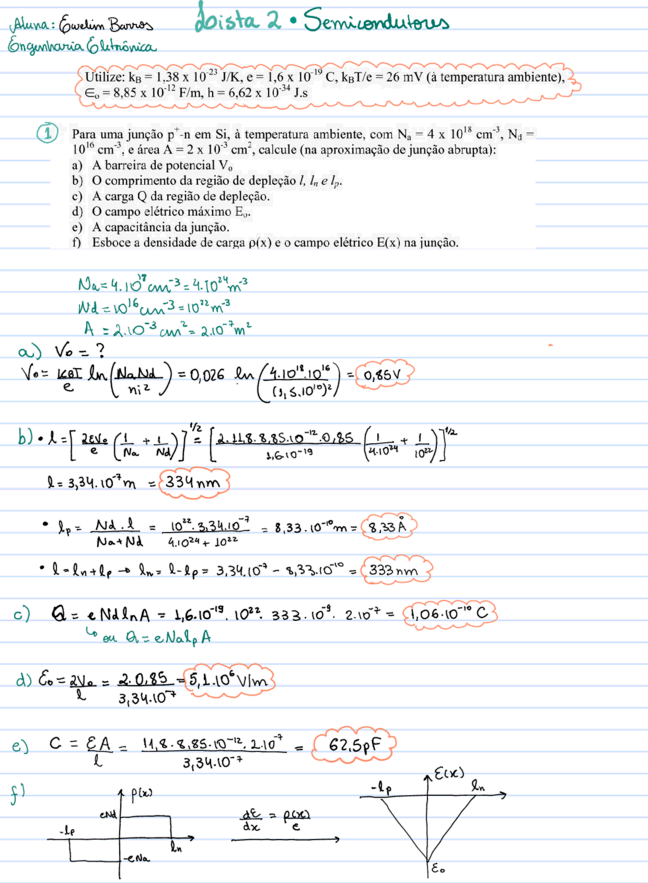 Aluna: Ewelin Barros
Lista 2 • Semicondutores
Engenharia Eletrônica
Utilize: k_B = 1,38 x 10^-23 J/K, e = 1,6 x 10^-19 C, k_BT/e = 26 mV (à temperatura ambiente),
∈_o = 8,85 x 10^-12 F/m, h = 6,62 x 10^-34 J.s
1 Para uma junção p^+-n em Si, à temperatura ambiente, com N_a = 4 x 10^18 cm^-3, N_d =
10^16 cm^-3, e área A = 2 x 10^-3 cm^2, calcule (na aproximação de junção abrupta):
a) A barreira de potencial V_o
b) O comprimento da região de depleção l, l_n e l_p.
c) A carga Q da região de depleção.
d) O campo elétrico máximo E_o.
e) A capacitância da junção.
f) Esboce a densidade de carga ρ(x) e o campo elétrico E(x) na junção.
Na = 4.10^18 cm^-3 = 4.10^24 m^-3
Nd = 10^16 cm^-3 = 10^22 m^-3
A = 2.10^-3 cm^2 = 2.10^-7 m^2
a) Vo = ?
Vo = KBT/e ln(NaNd/ni^2) = 0,026 ln(4.10^18.10^16/(1,5.10^10)^2) = 0,85V
b) • l = [2εVo/e (1/Na + 1/Nd)]^1/2 = [2.11,8.8,85.10^-12.0,85/1,6.10^-19 (1/4.10^24 + 1/10^22)]^1/2
l = 3,34.10^-7 m = 334 nm
• lp = Nd.l/Na+Nd = 10^22.3,34.10^-7/4.10^24 + 10^22 = 8,33.10^-10 m = 8,33 Å
• l = ln + lp → ln = l - lp = 3,34.10^-7 - 8,33.10^-10 = 333 nm
c) Q = e Nd ln A = 1,6.10^-19. 10^22. 333.10^-9. 2.10^-7 = 1,06.10^-10 C
↳ ou Q = e Na lp A
d) Ɛo = 2Vo/l = 2.0,85/3,34.10^-7 = 5,1.10^6 V/m
e) C = εA/l = 11,8.8,85.10^-12.2.10^-7/3,34.10^-7 = 62,5pF
f) ρ(x) Ɛ(x)
-lp ln
eNd dƐ/dx = ρ(x)/ε
-lp ln
-eNa Ɛo